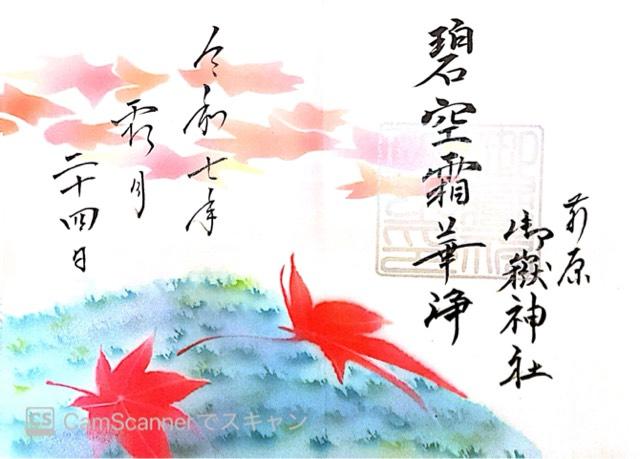 前原
御嶽神社
碧空霜華浄
令和七年
霜月
二十四日
CS CamScannerでスキャン